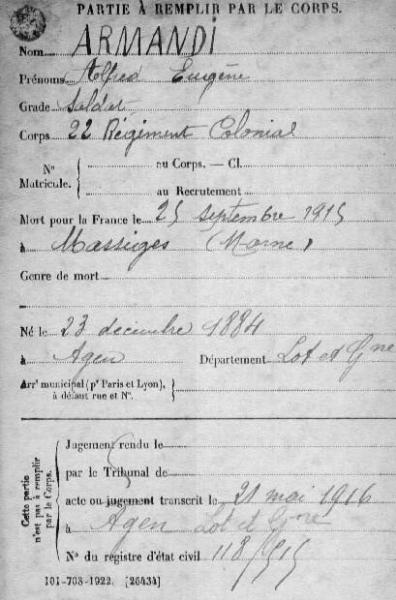 PARTIE À REMPLIR PAR LE CORPS.
Nom ARMANDI
Prénoms Alfred Eugène
Grade Soldat
Corps 22 Régiment Colonial
N° Matricule. { au Corps. — Cl.
au Recrutement
Mort pour la France le 25 septembre 1915
à Massiges (Marne)
Genre de mort
Né le 23 décembre 1884
à Agen Département Lot et Gne
Arrt municipal (pr Paris et Lyon), à défaut rue et N°.
Cette partie n'est pas à remplir par le Corps.
Jugement rendu le
par le Tribunal de
acte ou jugement transcrit le 21 mai 1916
à Agen Lot et Gne
N° du registre d'état civil 118/915
101-708-1922. [26434]